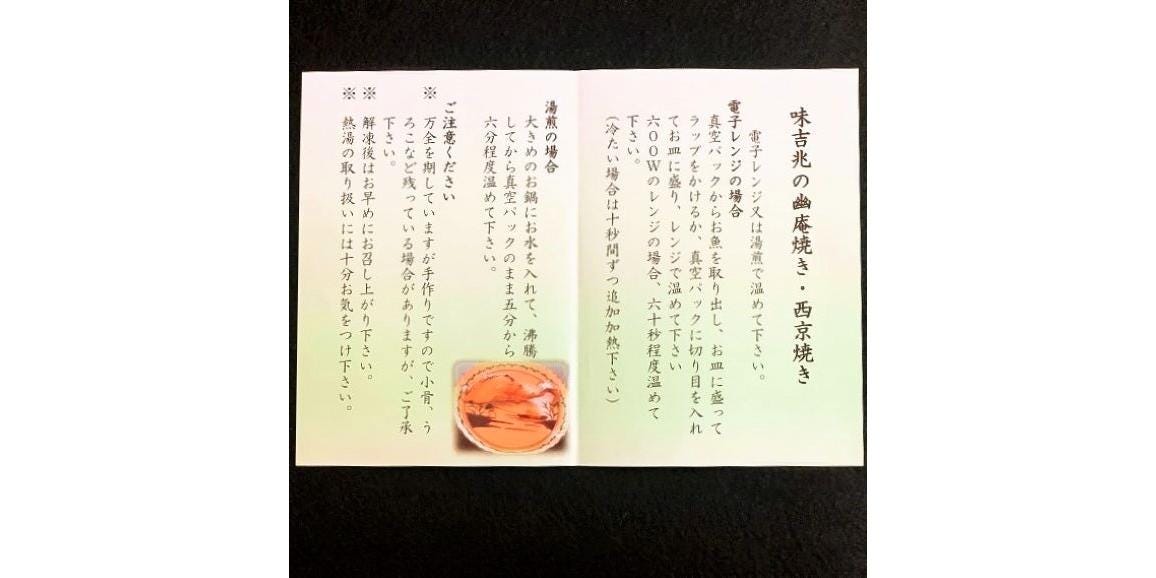 味吉兆の幽庵焼き・西京焼き
電子レンジ又は湯煎で温めて下さい。
電子レンジの場合
真空パックからお魚を取り出し、お皿に盛って
ラップをかけるか、真空パックに切り目を入れ
てお皿に盛り、レンジで温めて下さい
６００Ｗのレンジの場合、六十秒程度温めて
下さい。
（冷たい場合は十秒間ずつ追加加熱下さい）
湯煎の場合
大きめのお鍋にお水を入れて、沸騰
してから真空パックのまま五分から
六分程度温めて下さい。
ご注意ください
※　万全を期していますが手作りですので小骨、う
ろこなど残っている場合がありますが、ご了承
下さい。
※　解凍後はお早めにお召し上がり下さい。
※　熱湯の取り扱いには十分お気をつけ下さい。